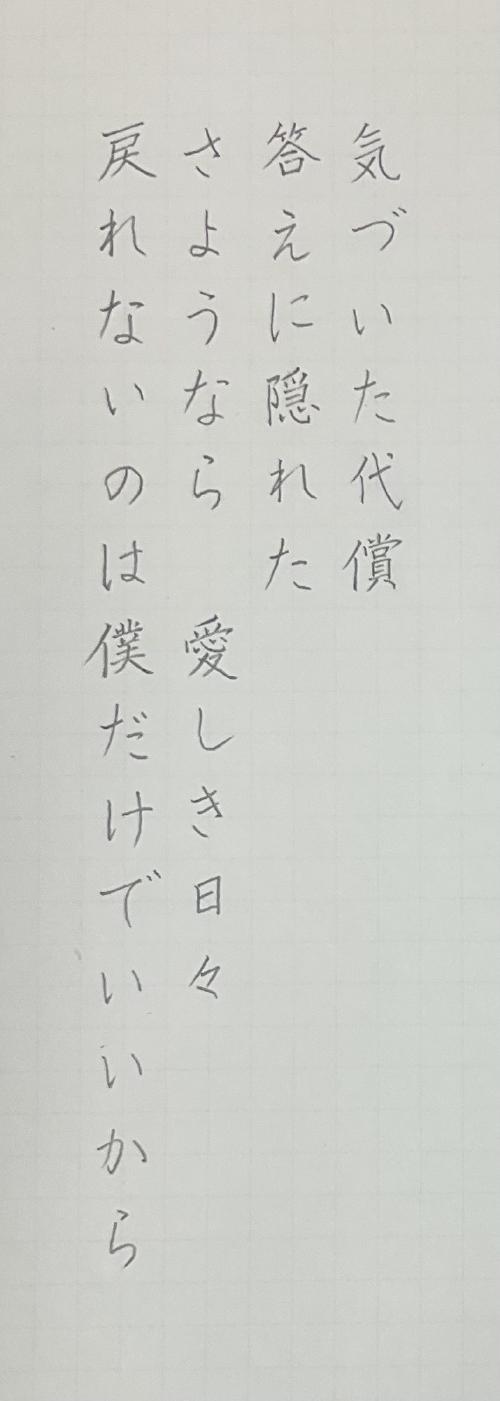 気づいた代償
答えに隠れた
さようなら　愛しき日々
戻れないのは僕だけでいいから